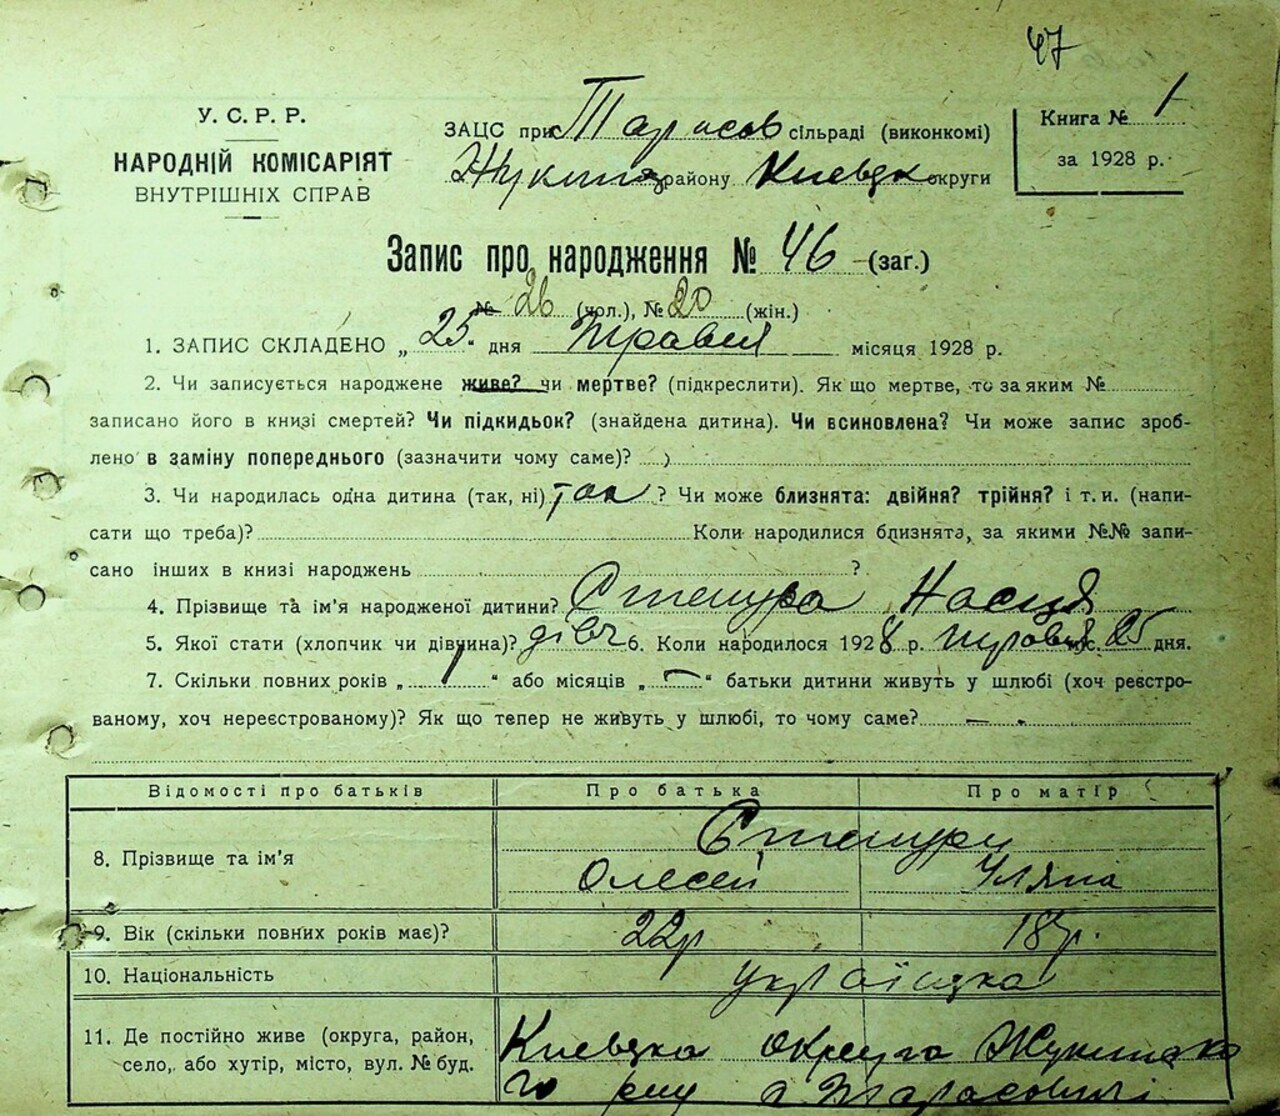 47
У. С. Р. Р.
НАРОДНІЙ КОМІСАРІЯТ
ВНУТРІШНІХ СПРАВ
ЗАЦС при Тарасов сільраді (виконкомі)
району Киевск округи
Книга № 1
за 1928 р.
Запис про народження № 46 (заг.)
№ 26 (чол.), № 20 (жін.)
1. ЗАПИС СКЛАДЕНО „25" дня Травня місяця 1928 р.
2. Чи записується народжене живе? чи мертве? (підкреслити). Як що мертве, то за яким №
записано його в книзі смертей? Чи підкидьок? (знайдена дитина). Чи всиновлена? Чи може запис зроб-
лено в заміну попереднього (зазначити чому саме)?
3. Чи народилась одна дитина (так, ні) так ? Чи може близнята: двійня? трійня? і т. и. (напи-
сати що треба)? Коли народилися близнята, за якими №№ запи-
сано інших в книзі народжень ?
4. Прізвище та ім'я народженої дитини? Степура Насця
5. Якої стати (хлопчик чи дівчина)? дівч 6. Коли народилося 1928 р. травня 25 дня.
7. Скільки повних років „ 1 " або місяців „ — " батьки дитини живуть у шлюбі (хоч реєстро-
ваному, хоч нереєстрованому)? Як що тепер не живуть у шлюбі, то чому саме? —
Відомості про батьків Про батька Про матір
8. Прізвище та ім'я Степури
Олесей Уляна
9. Вік (скільки повних років має)? 22р 18р.
10. Національність українска
11. Де постійно живе (округа, район,
село, або хутір, місто, вул. № буд.
Киевска округа Жукинско
го рну с Тарасовичі